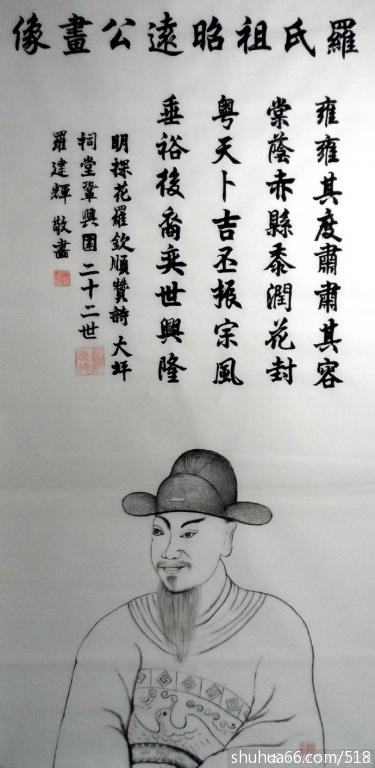 羅氏祖昭遠公畫像
雍雍其度肅肅其容
棠蔭赤縣黍潤花封
粵天卜吉丕振宗風
垂裕後裔奕世興隆
明探花羅欽順贊詩 大坪
祠堂鞏興園二十二世
羅建輝敬畫
shuhua66.com/518